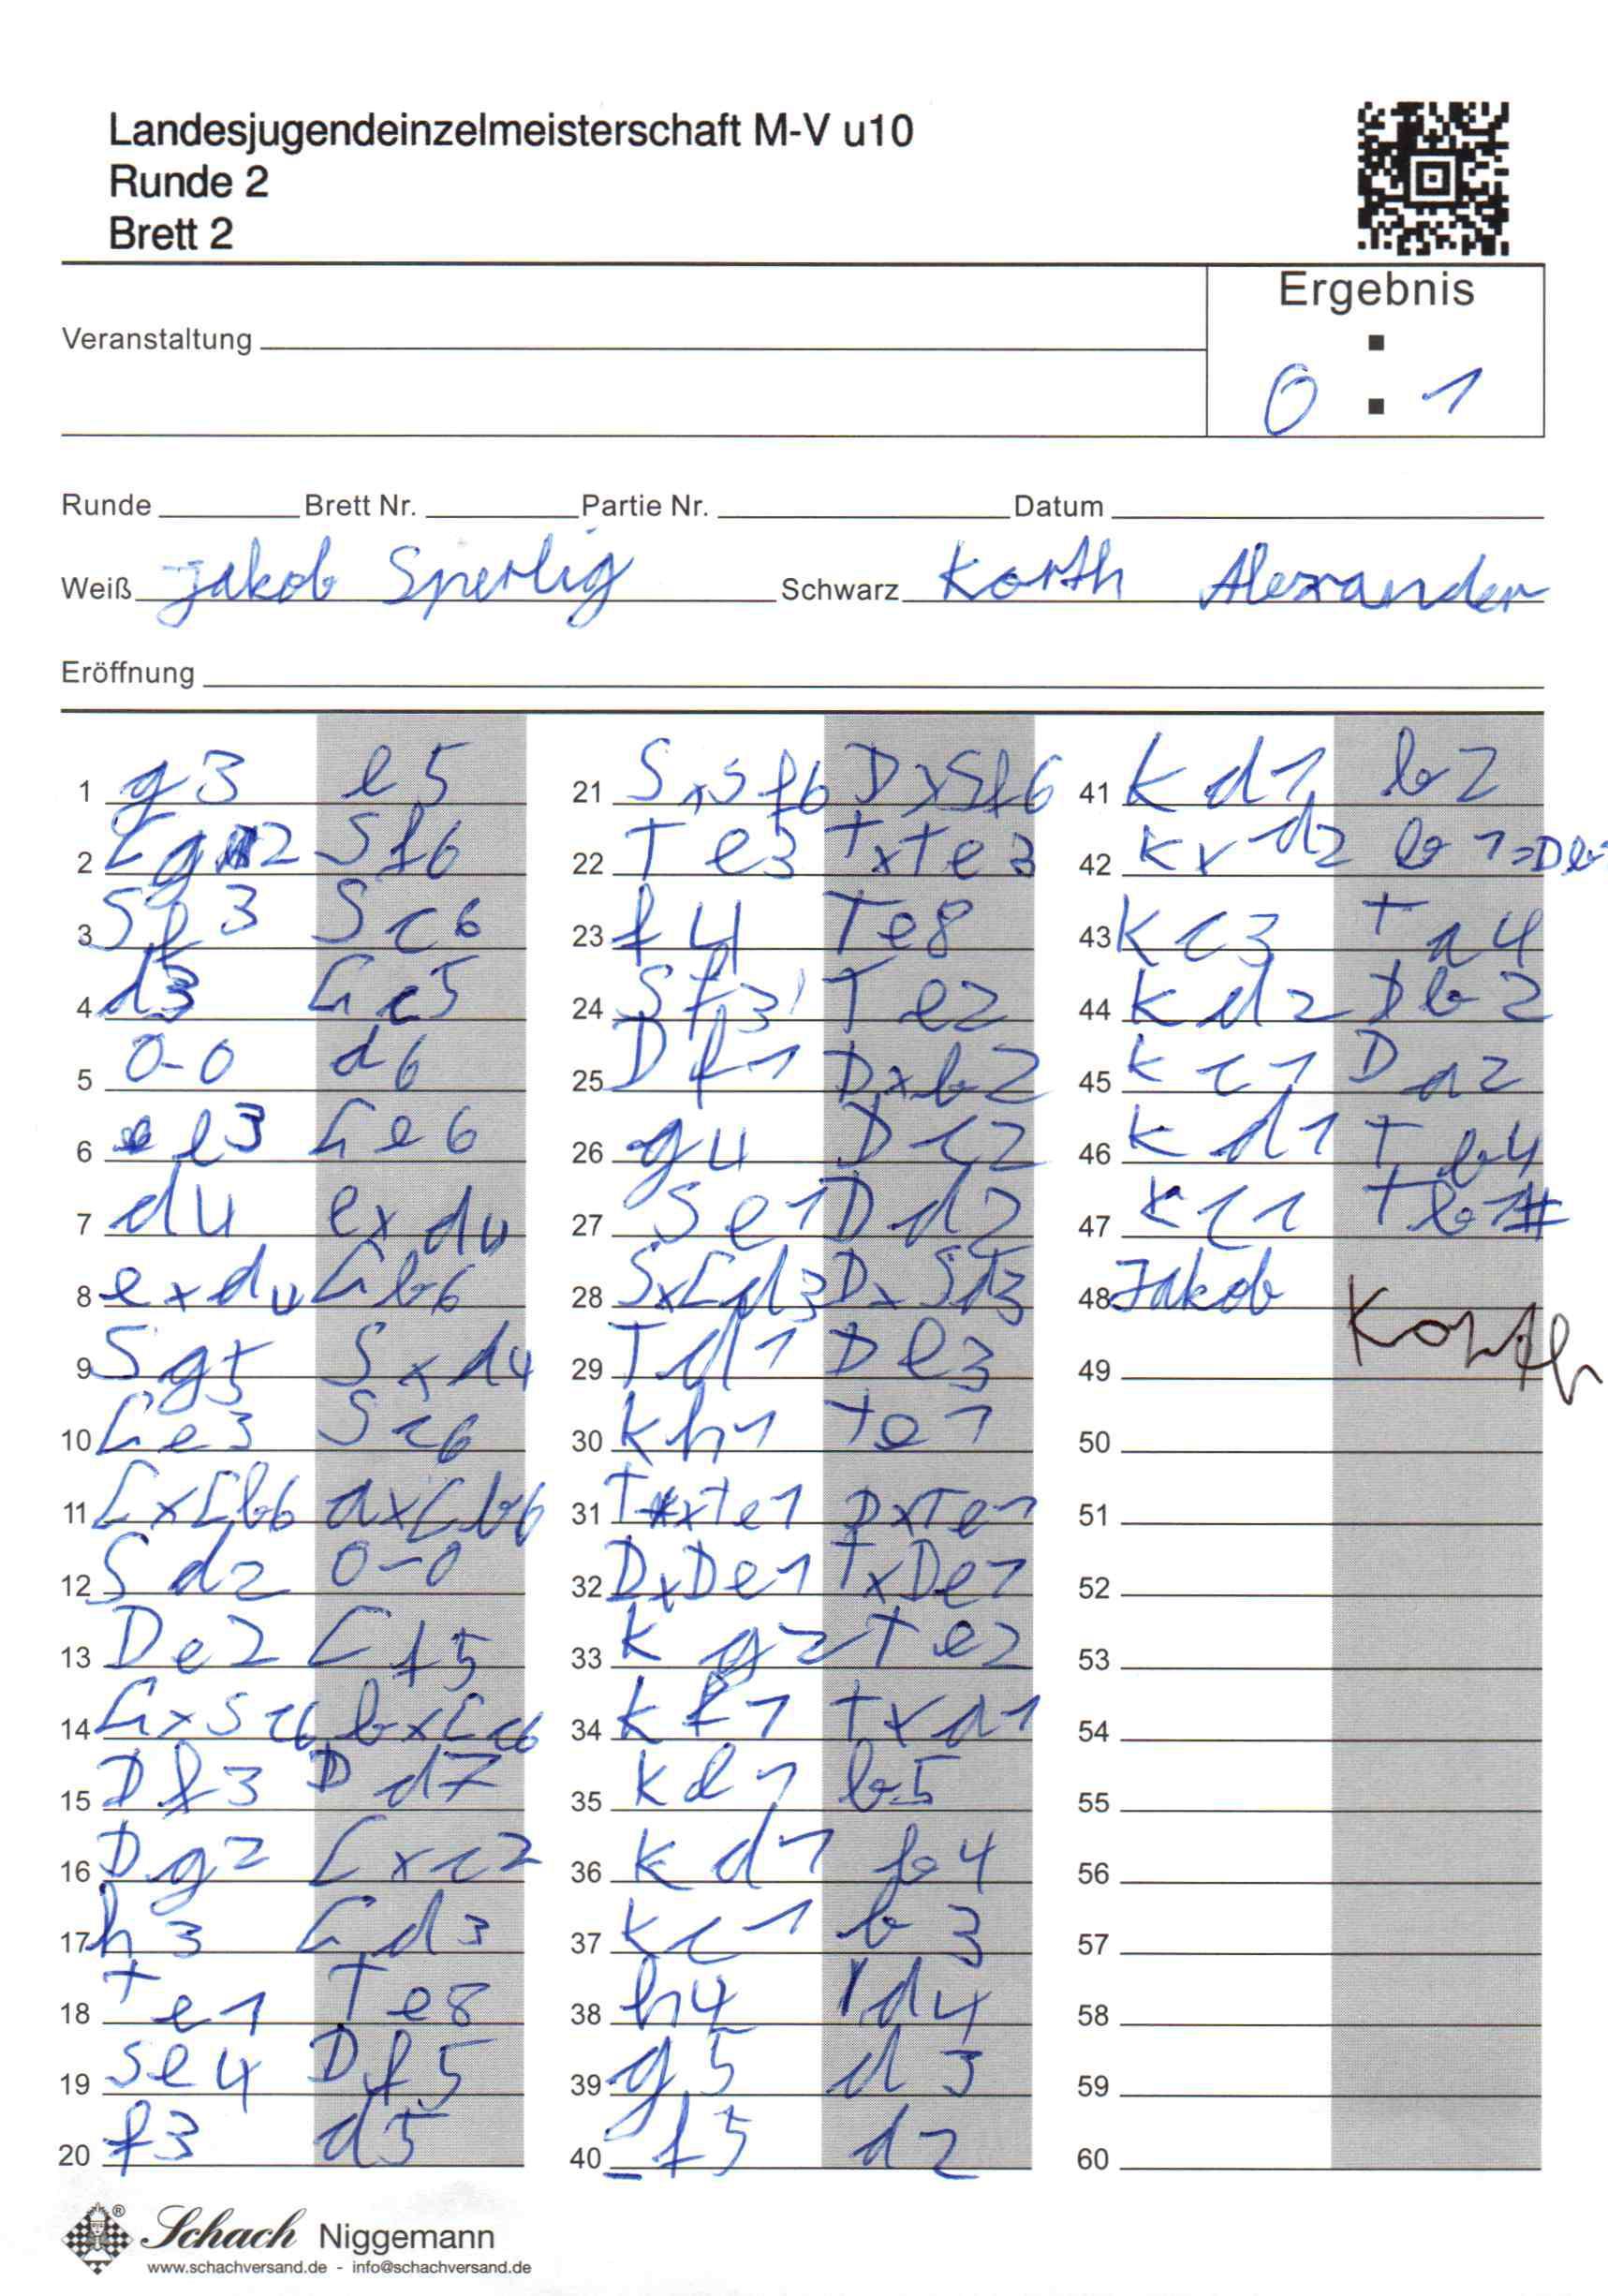 Landesjugendeinzelmeisterschaft M-V u10
Runde 2
Brett 2
Ergebnis
Veranstaltung
0 : 1
Runde Brett Nr. Partie Nr. Datum
Weiß Jakob Sperlig Schwarz Korth Alexander
Eröffnung
1 g3 e5
2 Lg2 Sf6
3 Sf3 Sc6
4 d3 Lc5
5 0-0 d6
6 e3 Le6
7 d4 exd4
8 exd4 Lb6
9 Sg5 Sxd4
10 Le3 Sc6
11 LxLb6 axLb6
12 Sd2 0-0
13 De2 Lf5
14 LxSc6 bxLc6
15 Df3 Dd7
16 Dg2 Lxc2
17 h3 Ld3
18 Te1 Te8
19 Se4 Df5
20 f3 d5
21 SxSf6 DxSf6
22 Te3 TxTe3
23 f4 Te8
24 Sf3 Te2
25 Df1 Dxb2
26 g4 Dc2
27 Se1 Dd2
28 SxLd3 DxSd3
29 Td1 De3
30 Kh1 Te1
31 TxTe1 DxTe1
32 DxDe1 TxDe1
33 Kg2 Te2
34 Kf1 Txa1
35 Ke1 b5
36 Kd1 b4
37 Kc1 b3
38 h4 d4
39 g5 d3
40 f5 d2
41 Kd1 b2
42 Kxd2 b1=D
43 Kc3 Ta4
44 Kd2 Db2
45 Kc1 Da2
46 Kd1 Tb4
47 Kc1 Tb1#
48 Jakob Korth
49
50
51
52
53
54
55
56
57
58
59
60
® Schach Niggemann
www.schachversand.de - info@schachversand.de